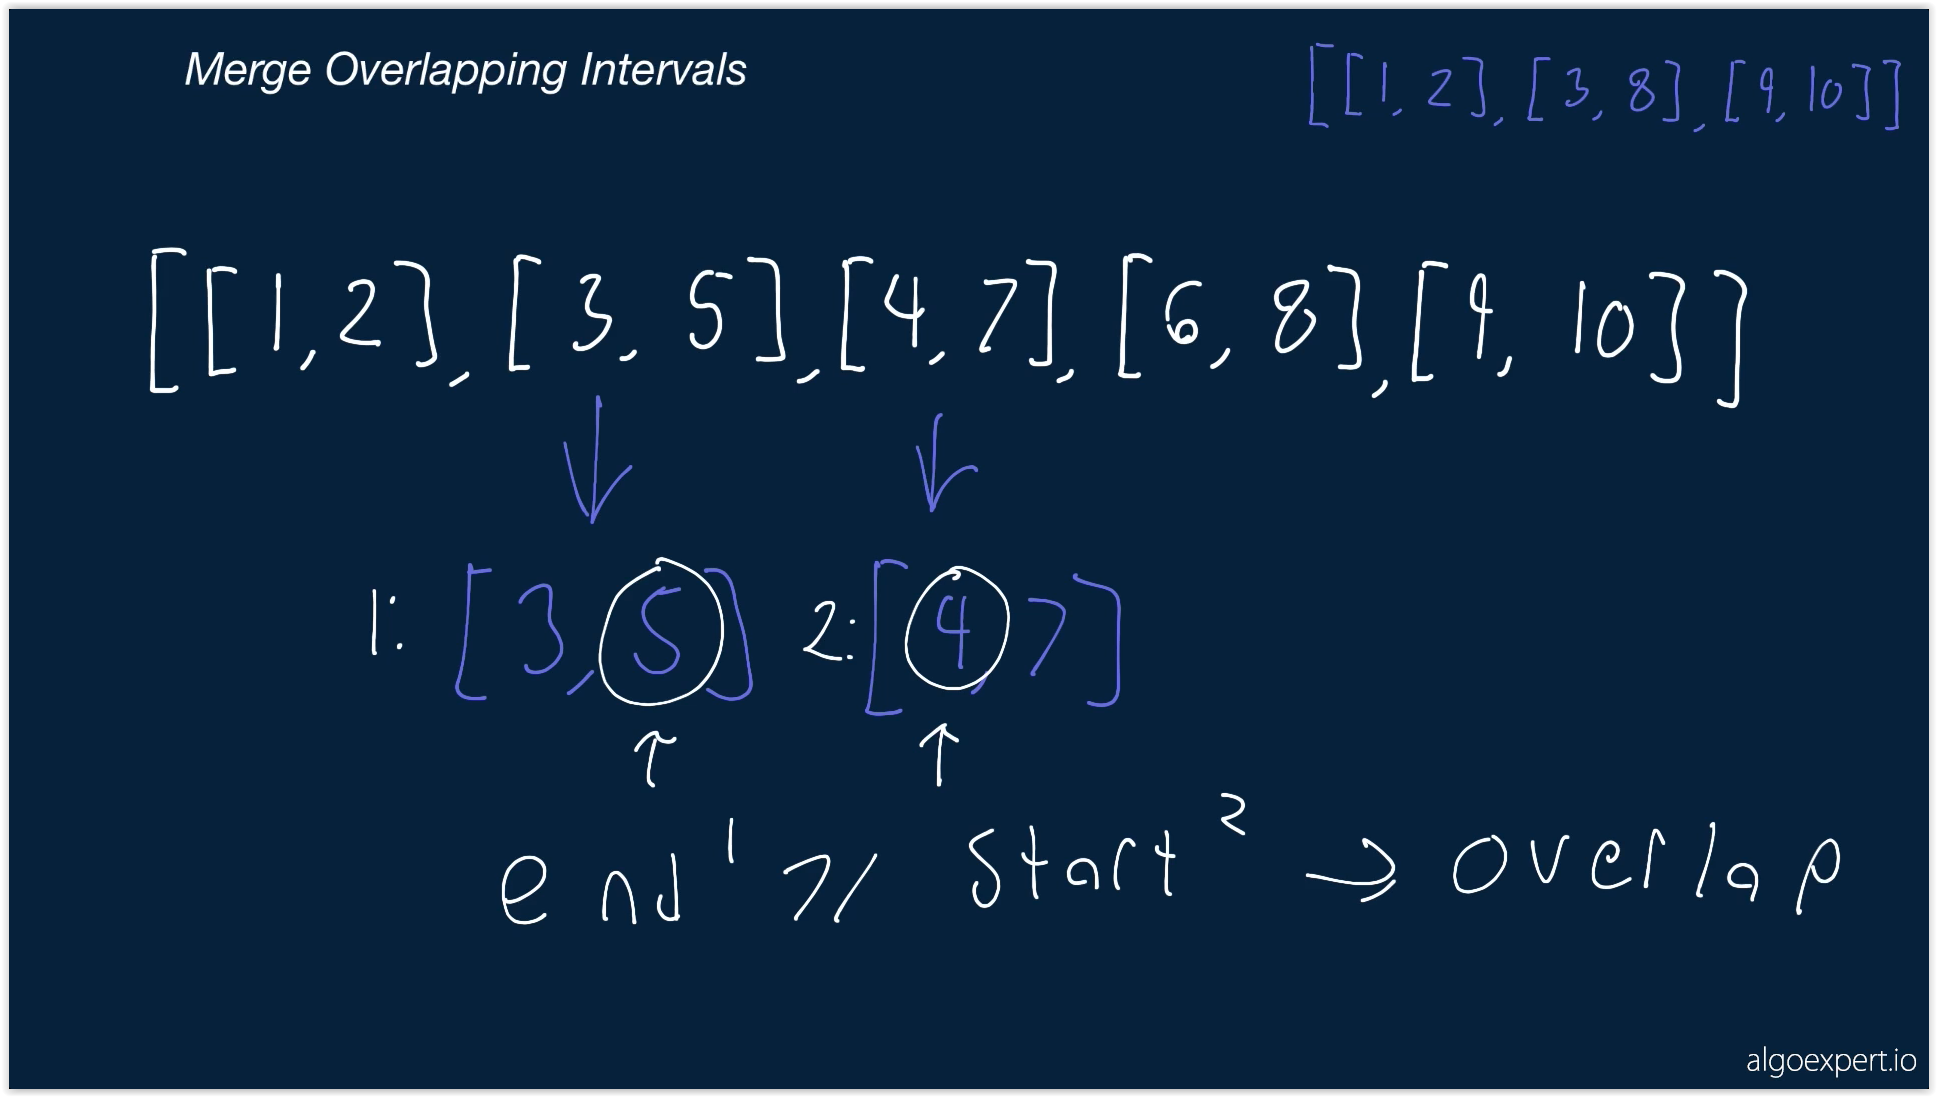 Merge Overlapping Intervals
[[1, 2], [3, 8], [9, 10]]
[[1, 2], [3, 5], [4, 7], [6, 8], [9, 10]]
1: [3, 5] 2: [4, 7]
end¹ ⩾ start² → overlap
algoexpert.io